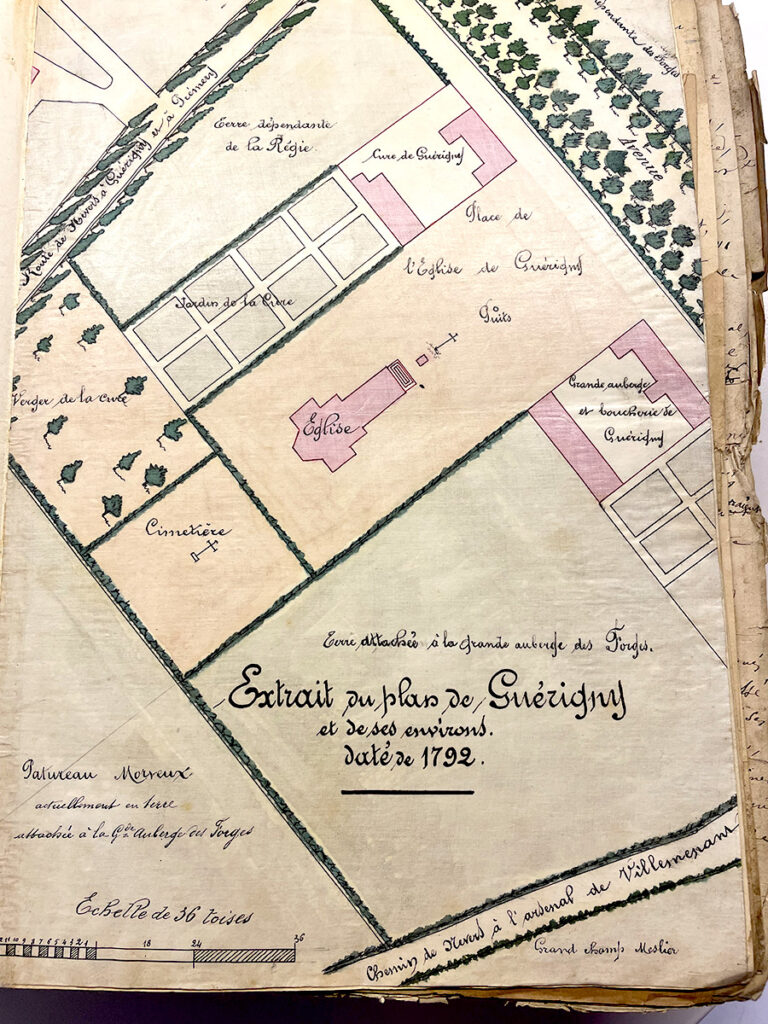 dépendante des Forges
Avenue
Route de Nevers à Guérigny et à Prémery
Terre dépendante
de la Régie.
Cure de Guérigny
Place de
l'Eglise de Guérigny
Puits
Jardin de la Cure
Verger de la cure
Eglise
Grande auberge
et boucherie de
Guérigny
Cimetière
Terre attachée à la grande auberge des Forges.
Extrait du plan de Guérigny
et de ses environs.
daté de 1792.
Patureau Morveux
actuellement en terre
attachée à la Gde Auberge des Forges
Echelle de 36 toises
18 24 36
Chemin de Nevers à l'arsenal de Villemenant
Grand champ Meslier